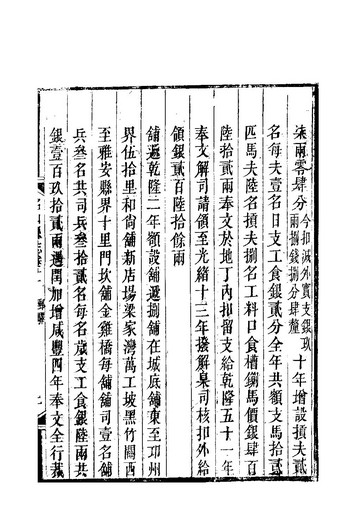 柒兩零肆分今扣減外實支銀玖兩捌錢捌分肆釐十年增設損夫貳
名每夫壹名日支工食銀貳分全年共額支馬拾貳
匹馬夫陸名損夫捌名工料口食槽鍘馬價銀肆百
陸拾貳兩奉文於地丁內扣留支給乾隆五十一年
奉文解司請領至光緒十三年撥解臬司核扣外給
領銀貳百陸拾餘兩
舖遞乾隆二年額設舖遞捌舖在城底舖東至邛州
界伍拾里和尚舖新店塲梁家灣萬工坡黑竹關西
至雅安縣界十里門坎舖金雞橋每舖舖司壹名舖
兵叄名共司兵叄拾貳名每名歲支工食銀陸兩共
銀壹百玖拾貳兩遇閏加增咸豐四年奉文全行裁
名山縣志卷十一
驛